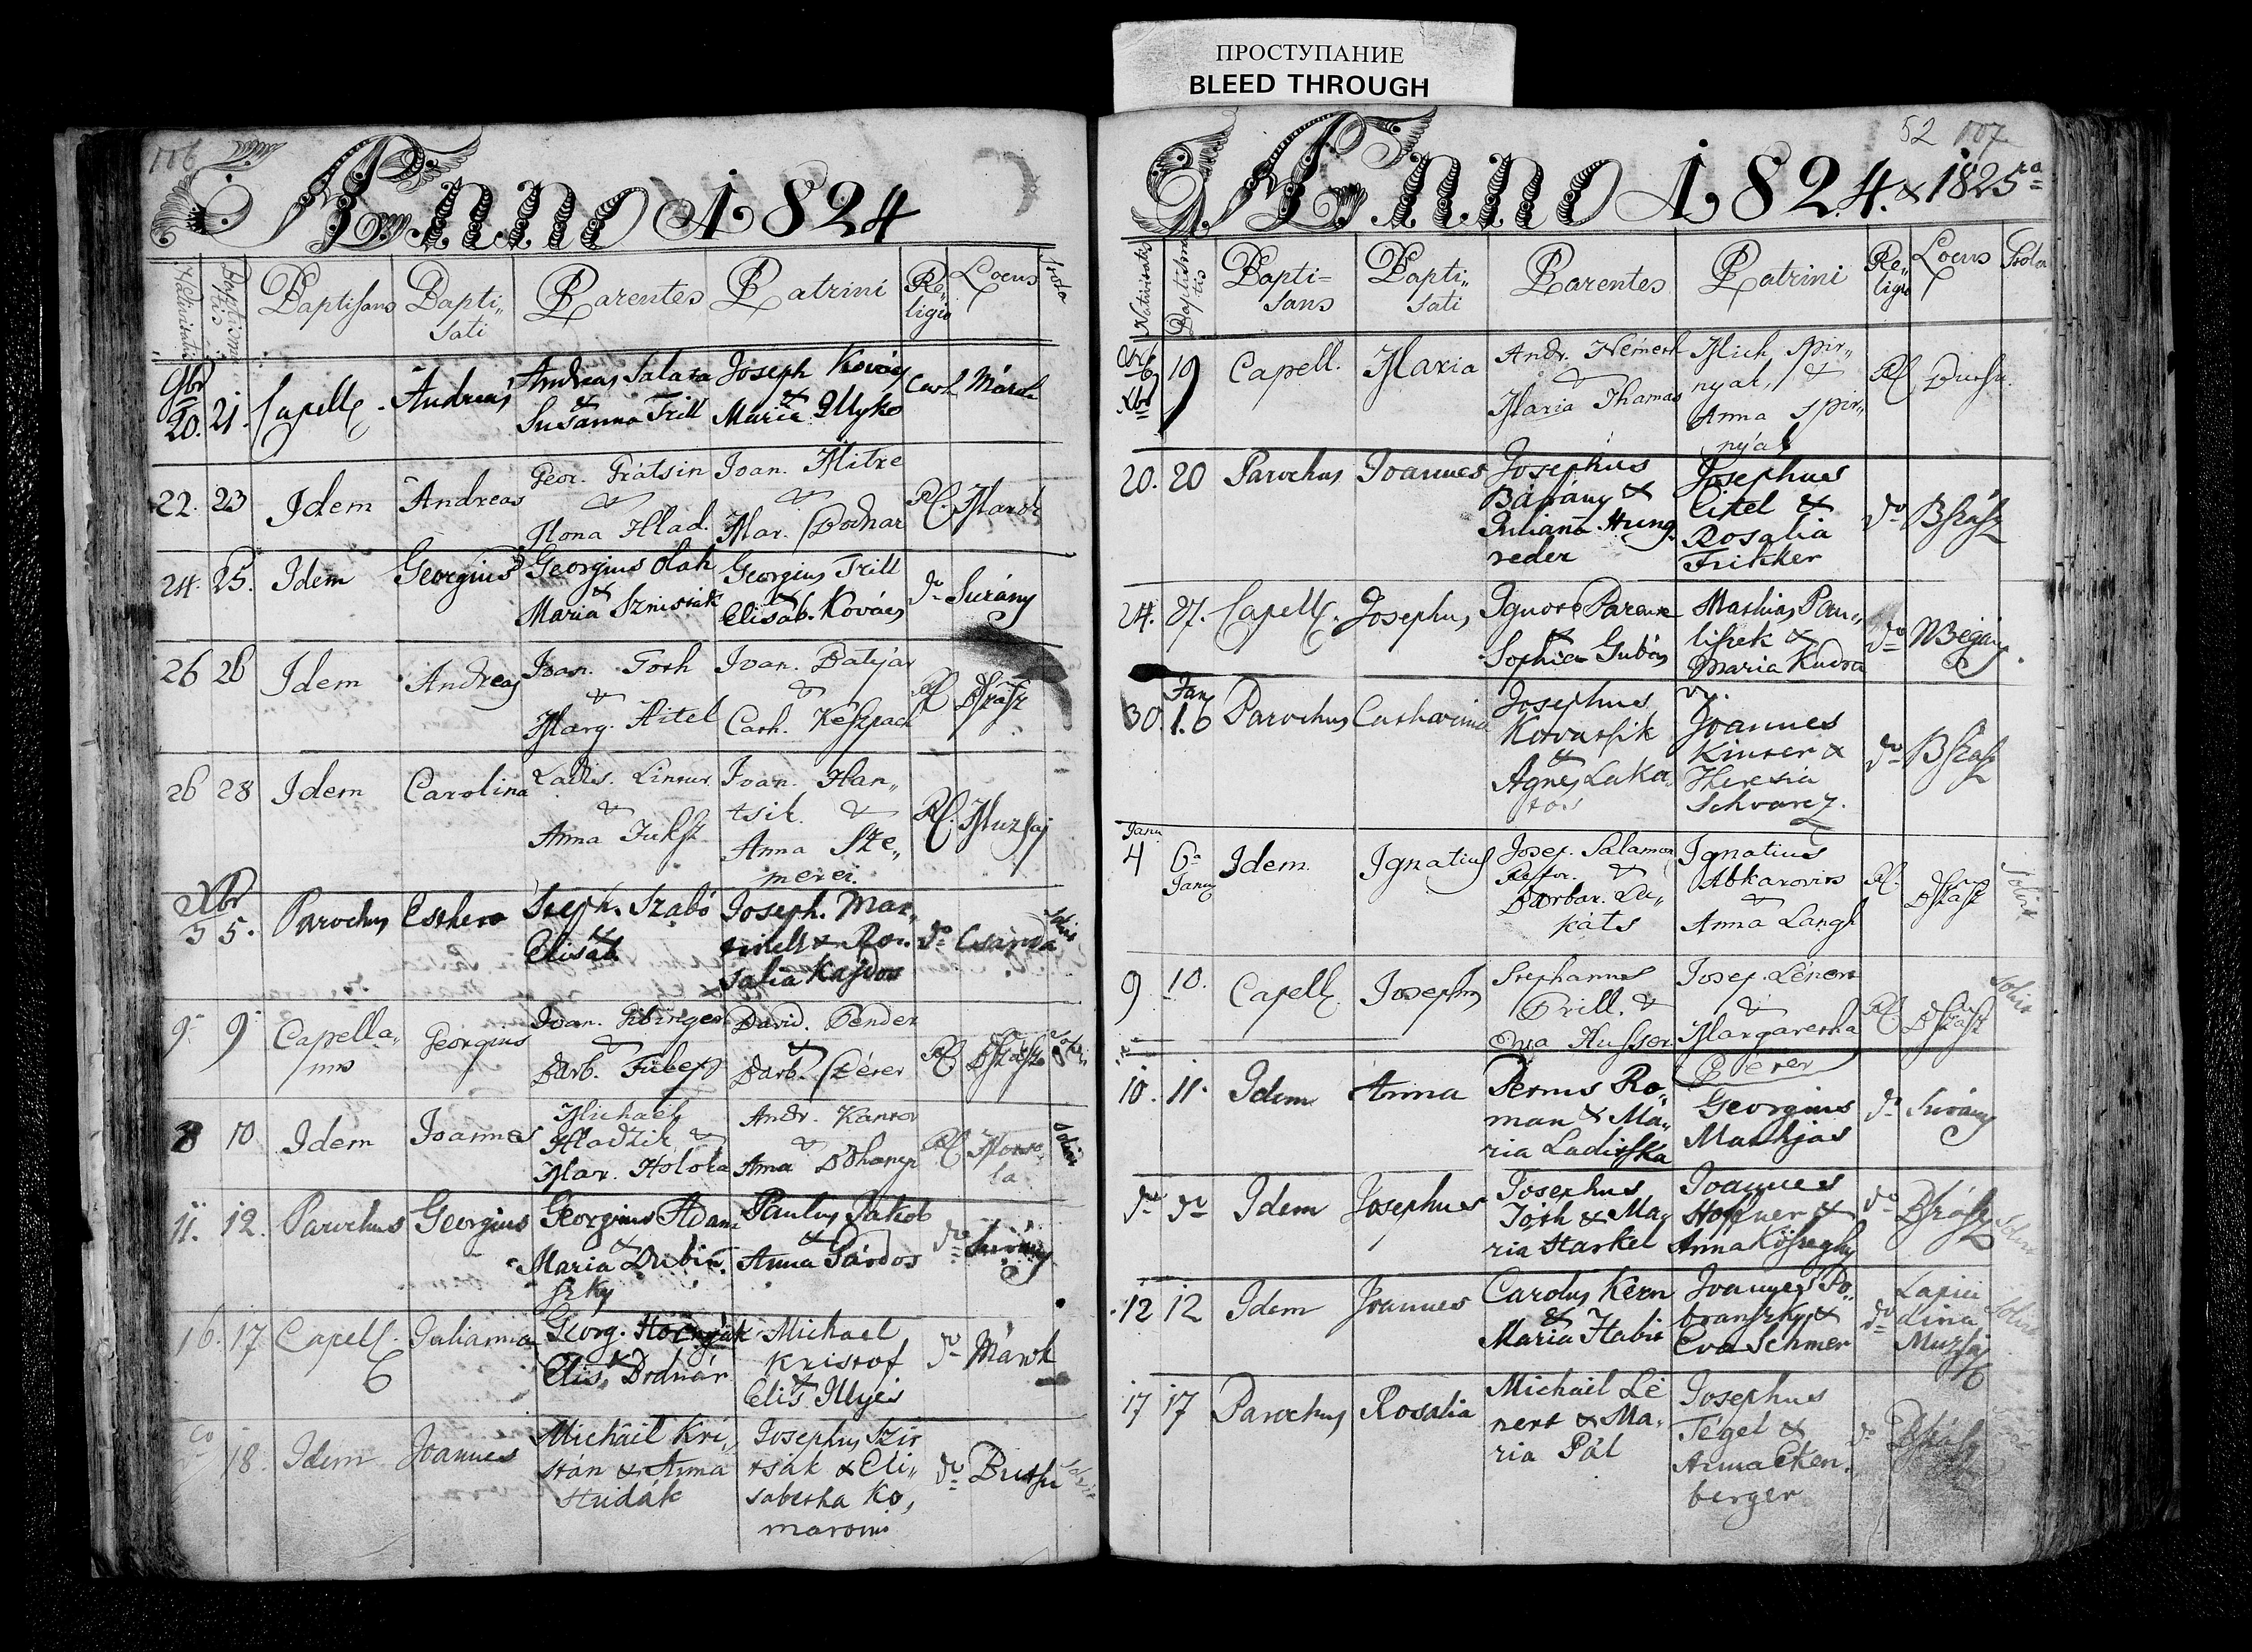 ПРОСТУПАНИЕ
BLEED THROUGH
106
Anno 1824
Nativitatis
Baptismatis
Baptisans
Bapti„
sati
Parentes
Patrini
Re„
ligio
Locus
Stola
9br
20. 21. Capell. Andreas
Andreas Salata
&
Susanna Trill
Joseph Kovács
&
Maria Illyko
Cath Márok
22. 23 Idem Andreas
Geor. Grátsin
&
Ilona Hlad.
Joan. Mitre
&
Mar. Bodnar
RC. Marok
24. 25. Idem Georgius
Georgius Olah
&
Maria Sznistsak
Georgius Trill
&
Elisab. Kovács
do Surány
26 26 Idem Andreas
Joan. Toth
&
Marg. Aitel
Joan. Batyar
&
Cath. Keszpach
RC BSzász
26 28 Idem Carolina
Ladis. Lintur
&
Anna Juksz
Joan. Han„
tsik. &
Anna Sze„
merei.
RC. Muzsaj
Xbr
3 5. Parochus Esthera
Steph. Szabó
&
Elisab
Joseph. Mar„
&  Ro„
salia Kajdos
do Csarda
9 9 Capella„
nus
Georgius
Joan. Fibinger
&
Barb. Fubex
David. Bender
&
Barb. Pérer
RC BSzász
8 10 Idem Joannes
Michael
Hladzik &
Mar. Holota
Andr. Kantor
&
Anna
RC
la
11. 12. Parochus Georgius
Georgius Adam
&
Maria Dubin„
szky
Paulus Jakob
&
Anna Gárdos
do Surány
16. 17 Capell. Julianna
Georg. Hornyak
&
Elis. Bodnár
Michael
Kristof
&
Elis Illyés
do Márok
18. Idem Joannes
Michail Kri„
stán & Anna
Hudák
Josephus Szir
tsák & Eli„
sabetha Ko„
maromi
do Butsu
52 107
Anno 1824. & 1825ta
Nativitatis
Baptisma
tis
Bapti=
sans
Bapti„
sati
Parentes
Patrini
Re„
ligio
Locus
Stola
Xbr
19 Capell. Maria
Andr. Németh
&
Maria Thamas
Mich. Spir„
nyak, &
Anna Spir„
nyak
RC Butsu
20. 20 Parochus Joannes
Josephus
Bárány &
Juliana Hung„
reder
Josephus
Eitel &
Rosalia
Frikker
do BSzász
24. 27. Capell. Josephus
&
Sophia Gubás
Mathias Pau„
lisek &
Maria Kudra
do NBégány
30. Jan
1.6 Parochus Catharina
Josephus
Kovatsik
&
Agnes Laka„
tos
Joannes
Kinter &
Theresia
Schvarcz.
do BSzász
Janu
4 6a
Janu
Idem Ignatius
Josep. Salamon
&
Barbar. Lu„
káts
Ignatius
Abkarovits
&
Anna Langh
RC. BSzász
9 10. Capell. Josephus
Stephannus
Brill. &
Eva Husser
Josep. Lénert
&
Margaretha
Pérer
RC BSzász
10. 11. Idem Anna
Petrus Ro„
man & Ma„
ria Ladisska
Georgius
Mathjas
do Surány
do do Idem Josephus
Josephus
Tóth & Ma„
ria Starkel
Joannes
Hoffner &
Anna Köszeghy
do BSzász
12 12 Idem Joannes
Carolus Kern
&
Maria Habit
Joannes Do„
branszky &
Eva Schmer
do Lapici
dina
Muzsaj
17 17 Parochus Rosalia
Michail Lé
nert & Ma„
ria Pál
Josephus
Tégel &
Anna Eken„
berger
do BSzász